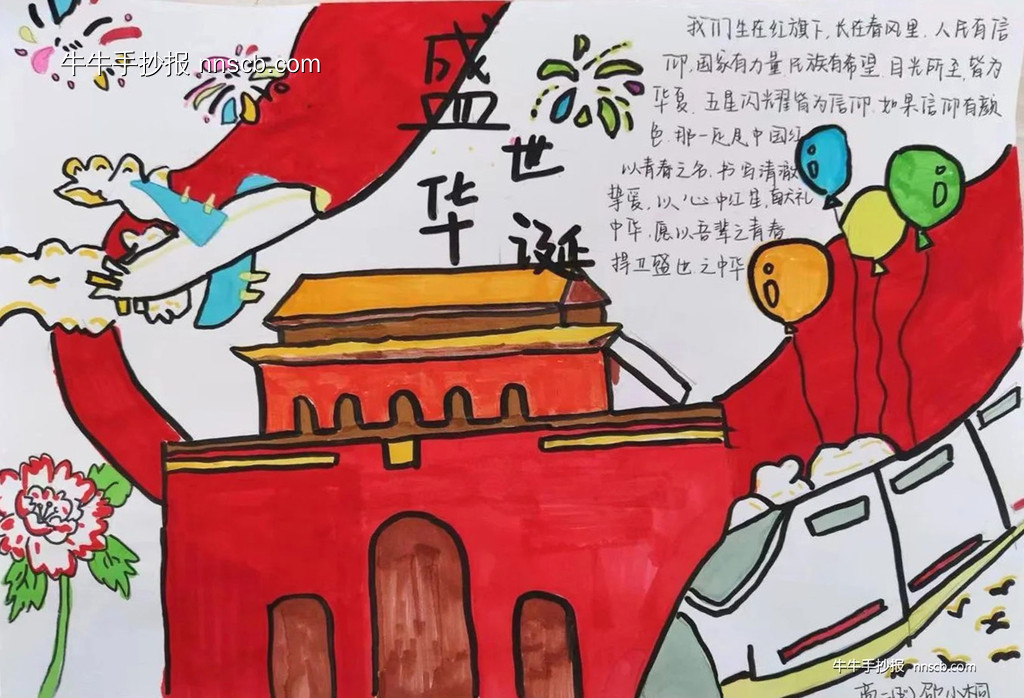 牛牛手抄报 nnscb.com
盛世华诞
我们生在红旗下,长在春风里,人民有信
仰,国家有力量,民族有希望,目光所至,皆为
华夏,五星闪耀皆为信仰.如果信仰有颜
色,那一定是中国红
以青春之名,书写清澈
挚爱,以心中红星,献礼
中华,愿以吾辈之青春
捍卫盛世之中华
牛牛手抄报 nnscb.com